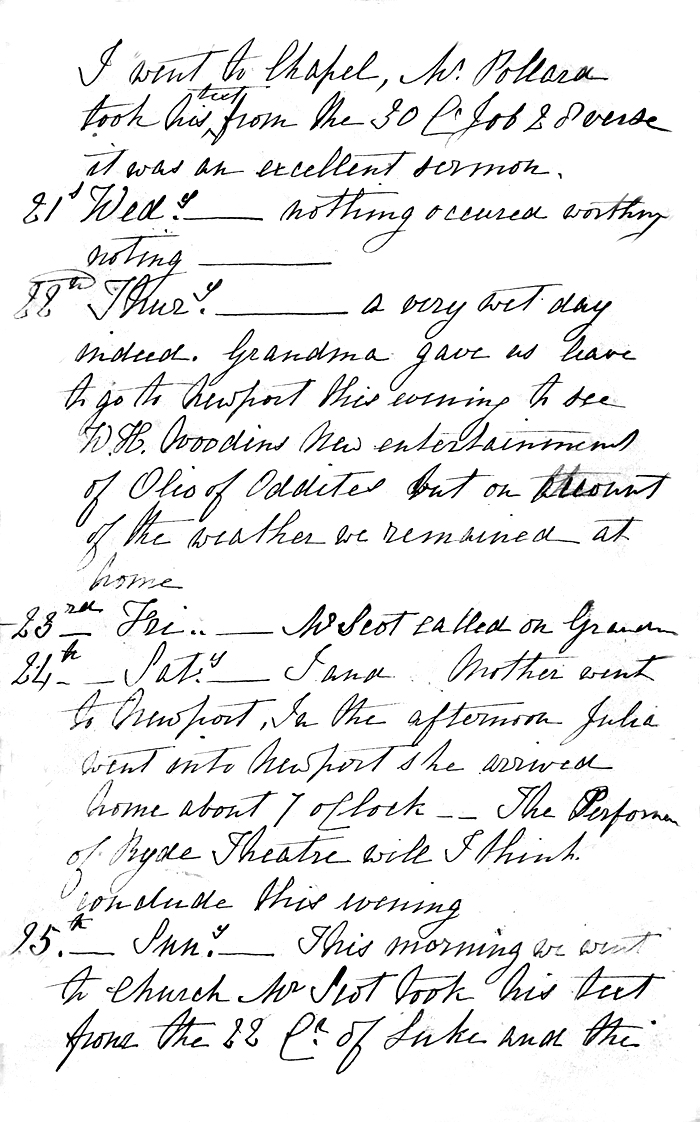 I went to Chapel, Mr. Pollard
took his text from the 30 C. Job 28 verse
it was an excellent sermon.
21s Wed.y — nothing occured worthy
noting —
22n Thur.y — a very wet day
indeed. Grandma gave us leave
to go to Newport this evening to see
W.H. Woodins New entertainment
of Olio of Oddites but on account
of the weather we remained at
home
23rd Fri.. — Mr Scot called on Grandm
24th — Sat.y — I and Mother went
to Newport, In the afternoon Julia
went into Newport she arrived
home about 7 oClock -- The Performen
of Ryde Theatre will I think
conclude this evening
25.th — Sun.y — This morning we went
to Church Mr Scot took his text
from the 22 C.r of Luke and the